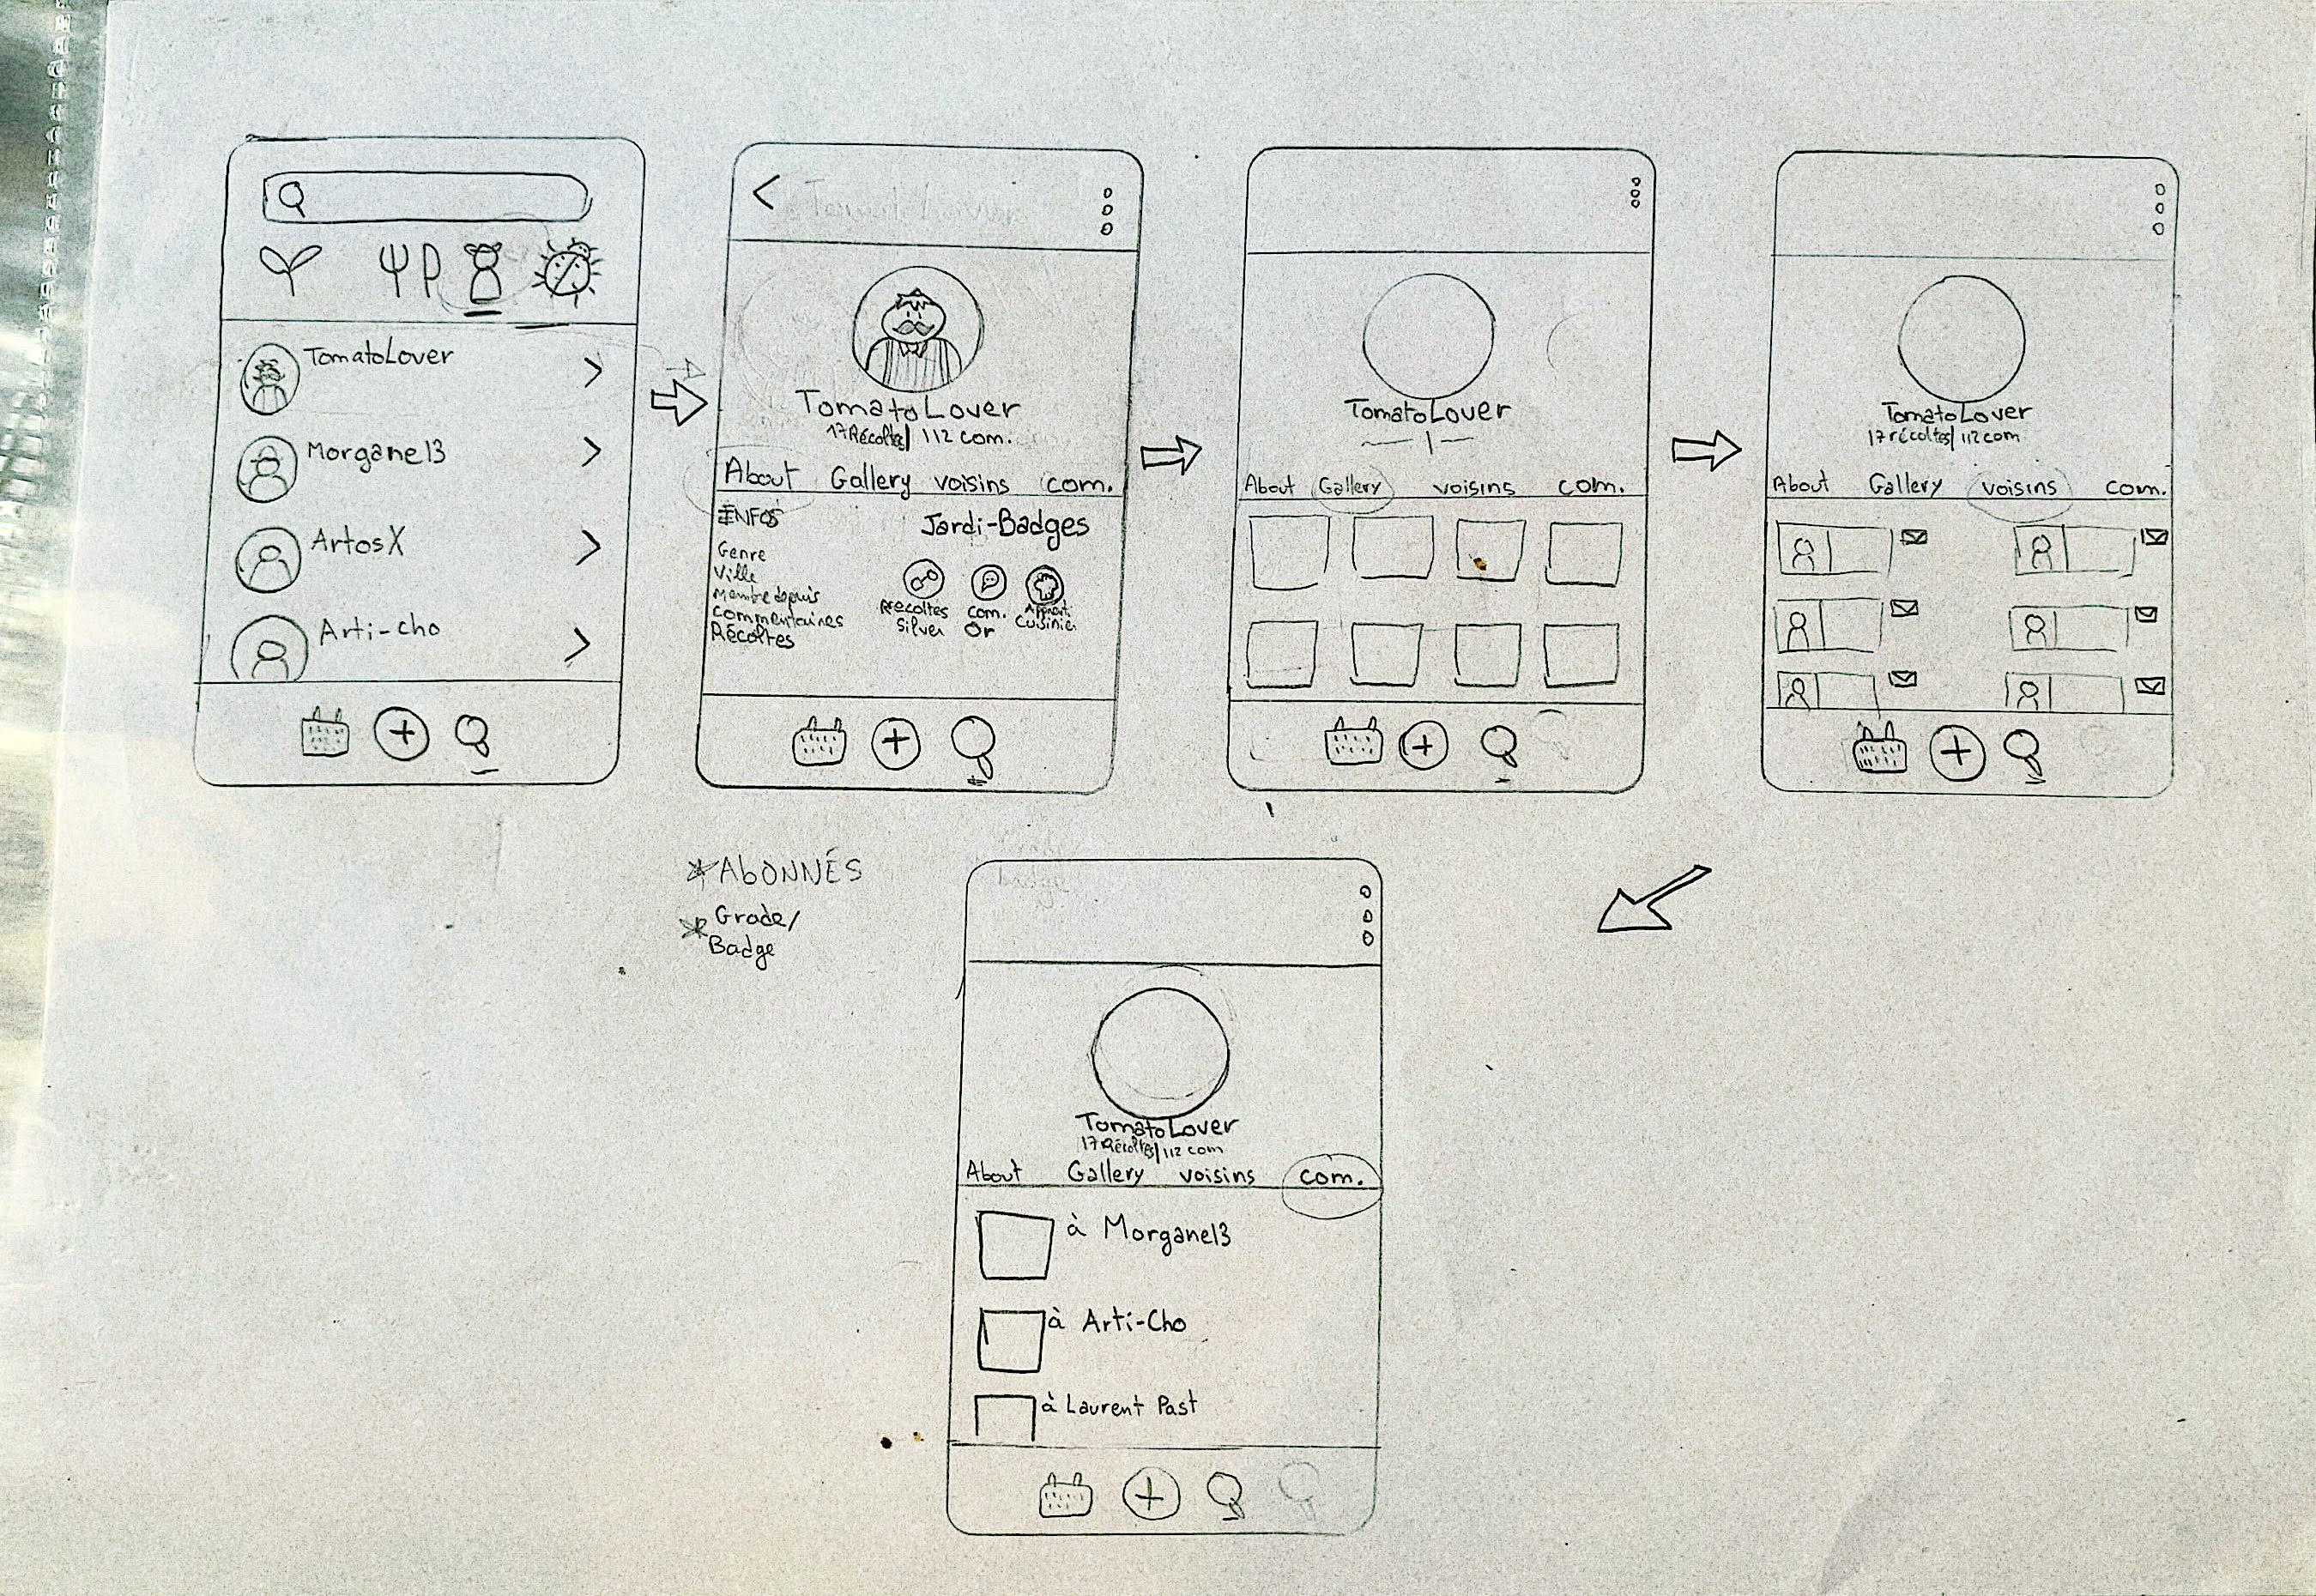 TomatoLover
Morgane13
ArtosX
Arti-cho
TomatoLover
17 Récoltes/ 112 com.
About Gallery voisins com.
INFOS
Genre
Ville
Membre depuis
Commentaires
Récoltes
Jardi-Badges
Récoltes
Silver
com.
Or
Apprenti
Cuisinier
TomatoLover
About Gallery voisins com.
TomatoLover
17 récoltes/ 112 com
About Gallery voisins com.
*ABONNÉS
*Grade/
Badge
TomatoLover
17 Récoltes/ 112 com
About Gallery voisins com.
à Morgane13
à Arti-Cho
à Laurent Past